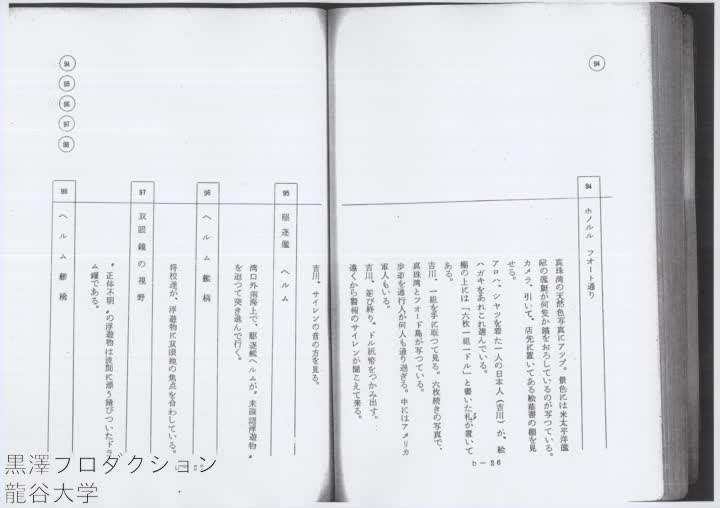 94
94
ホノルル フオート通り
真珠湾の天然色写真にアップ。景色には米太平洋艦
隊の艦艇が何隻か錨をおろしているのが写つている。
カメラ、引いて、店先に置いてある絵葉書の棚を見
せる。
アロハ、シャツを着た一人の日本人（吉川）が、絵
ハガキをあれこれ選んでいる。
棚の上には「六枚一組一ドル」と書いた札が置いて
ある。
吉川、一組を手に取つて見る。六枚続きの写真で、
真珠湾とフォード島が写つている。
歩道を通行人が何人も通り過ぎる。中にはアメリカ
軍人もいる。
吉川、選び終り、ドル紙幣をつかみ出す。
遠くから警報のサイレンが聞こえて来る。
b－26
吉川、サイレンの音の方を見る。
95
駆逐艦 ヘルム
湾口外南海上で、駆逐艦ヘルムが〝未確認浮遊物〟
を追つて突き進んで行く。
96
ヘルム艦橋
将校達が、浮遊物に双眼鏡の焦点を合わしている。
97
双眼鏡の視野
〝正体不明〟の浮遊物は波間に漂う錆びついたドラ
ム罐である。
98
ヘルム艦橋
94
95
96
97
98
黒澤プロダクション
龍谷大学